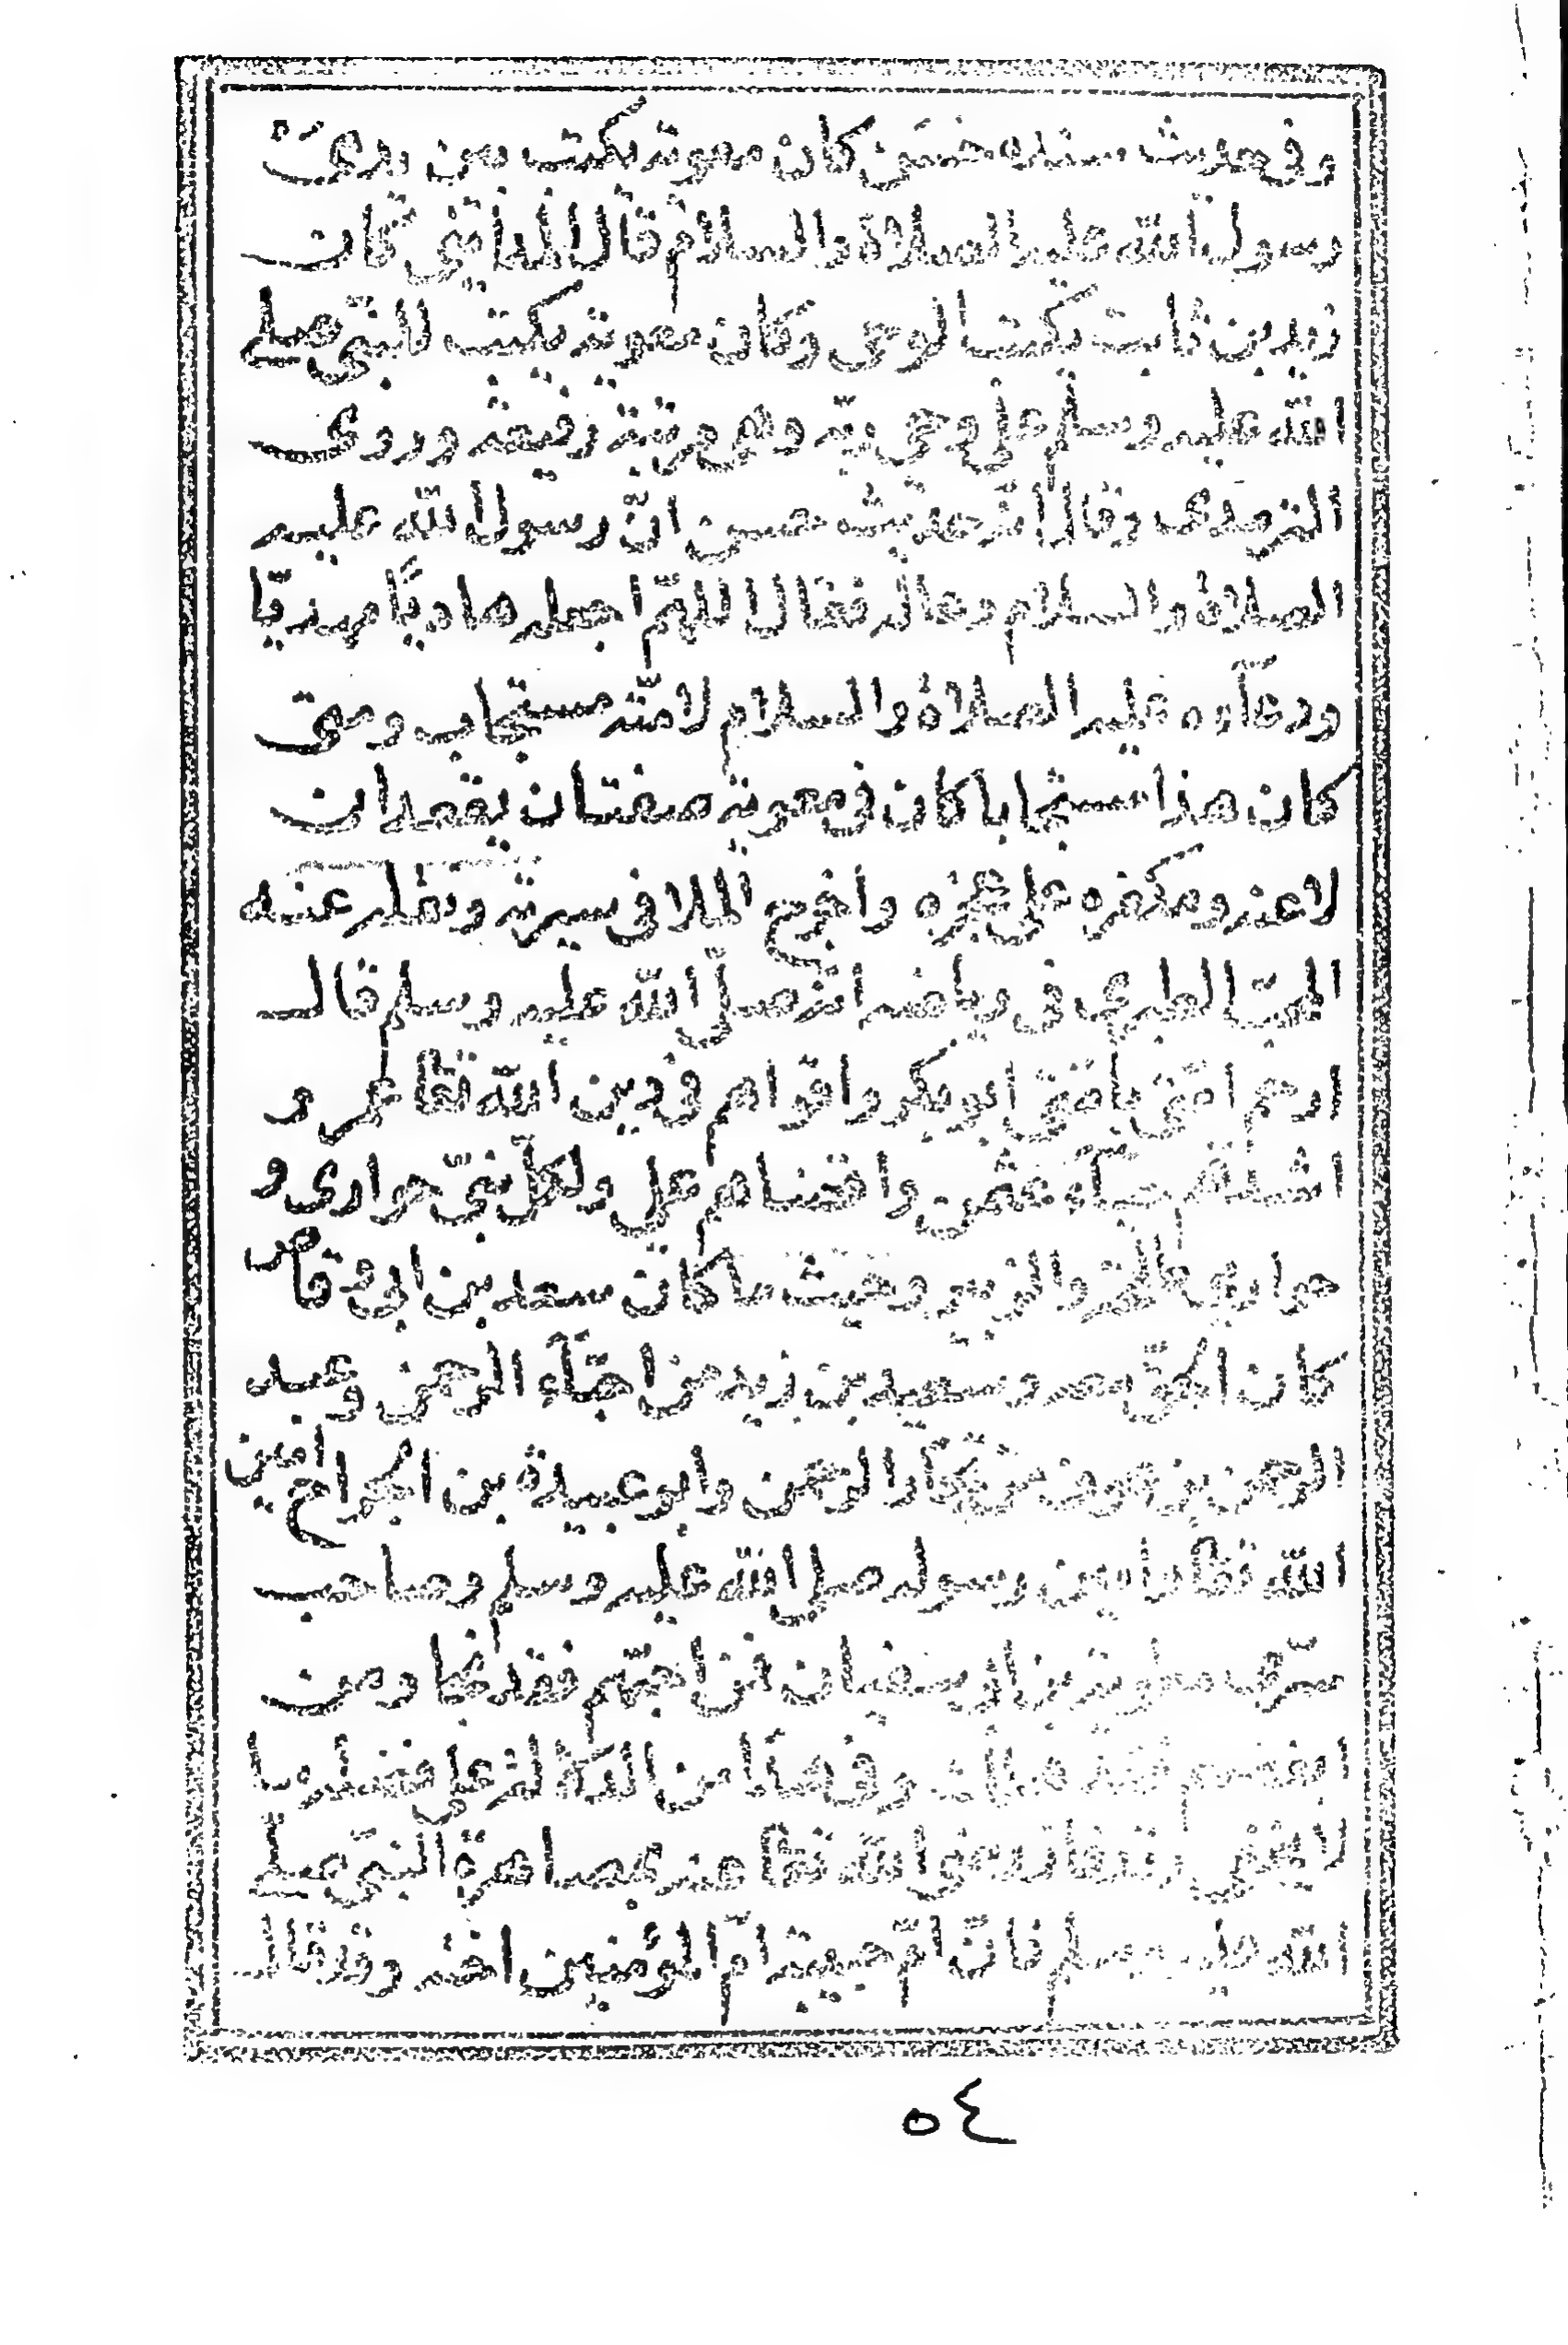 وفى حديث سنده حسن كان معوية يكتب بين يدى
رسول الله عليه الصلاة والسلام قال المدايني كان
زيد بن ثابت يكتب الوحى وكان معوية يكتب للنبى صلى
الله عليه وسلم على وحى ربه وهى مرتبة رفيعة وروى
الترمذى وقال انه حديث حسن ان رسول الله عليه
الصلاة والسلام دعا له فقال اللهم اجعله هاديا مهديا
ودعآءه عليه الصلاة والسلام لامته مستجاب ومتى
كان هذا مستجابا كان فى معوية صفتان يقعدان
لاعنه ومكفره على عجزه واخرج الملا فى سيرته ونقله عنه
المحب الطبرى فى رياضه انه صلى الله عليه وسلم قال
ارحم امتى بامتى ابو بكر واقوام فى دين الله تعا عمر و
اشدهم حيآء عثمن واقضاهم على ولكل نبى حوارى و
حواريى طلحة والزبير وحيث ما كان سعد بن ابى وقاص
كان الحق معه وسعيد بن زيد من احبآء الرحمن وعبد
الرحمن بن عوف من تجار الرحمن وابو عبيدة بن الجراح امين
الله تعا وامين رسوله صلى الله عليه وسلم وصاحب
سرى معاوية بن ابى سفيان فمن احبهم فقد نجا ومن
ابغضهم فقد هلك وفى هذا من الدلالة على فضله
رضى الله تعا عنه بمصاهرة النبى صلى
الله عليه وسلم فان ام حبيبة ام المؤمنين اخته وقد قال
٥٤